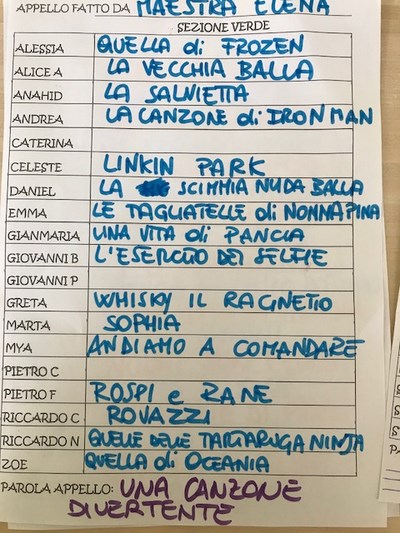 APPELLO FATTO DA MAESTRA ELENA
SEZIONE VERDE
ALESSIA QUELLA di FROZEN
ALICE A LA VECCHIA BALLA
ANAHID LA SALVIETTA
ANDREA LA CANZONE di IRON MAN
CATERINA
CELESTE LINKIN PARK
DANIEL LA SCIMMIA NUDA BALLA
EMMA LE TAGLIATELLE di NONNA PINA
GIANMARIA UNA VITA di PANCIA
GIOVANNI B L'ESERCITO DEI SELFIE
GIOVANNI P
GRETA WHISKY IL RAGNETTO
MARTA SOPHIA
MYA ANDIAMO A COMANDARE
PIETRO C
PIETRO F ROSPI e RANE
RICCARDO C ROVAZZI
RICCARDO N QUELLE DELLE TARTARUGA NINJA
ZOE QUELLA di OCEANIA
PAROLA APPELLO: UNA CANZONE
DIVERTENTE